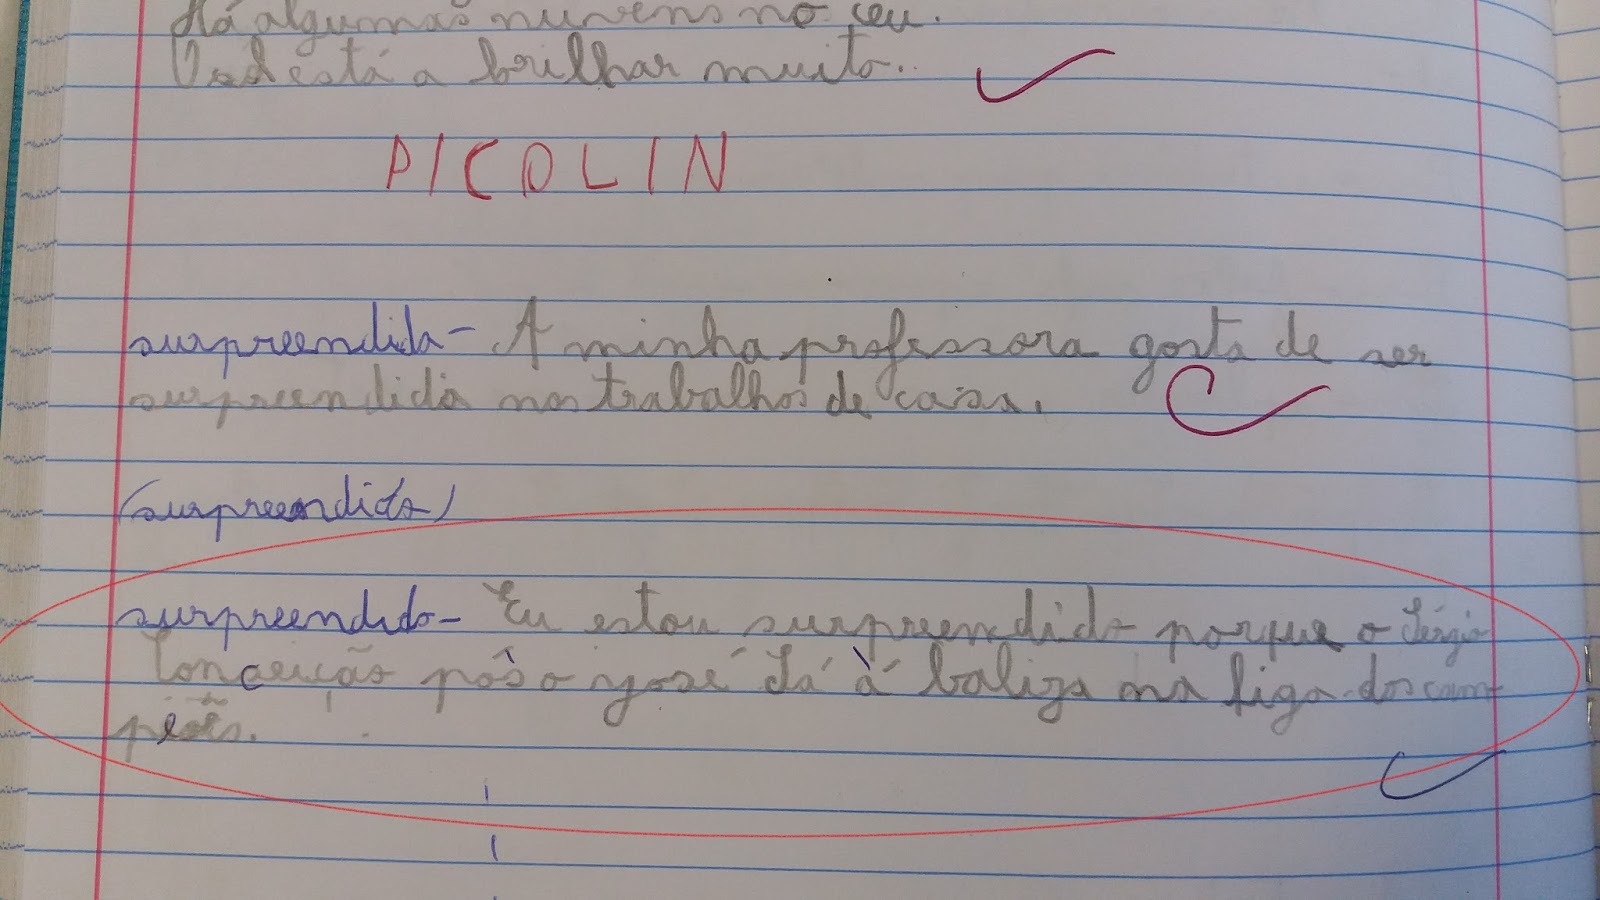 Há algumas nuvens no céu.
O sol está a brilhar muito.
PICOLIN
surpreendida - A minha professora gosta de ser
surpreendida nos trabalhos de casa.
(surpreendida)
surpreendido - Eu estou surpreendido porque o Sérgio
Conceição pôs o José Sá à baliza na liga dos cam-
peões.